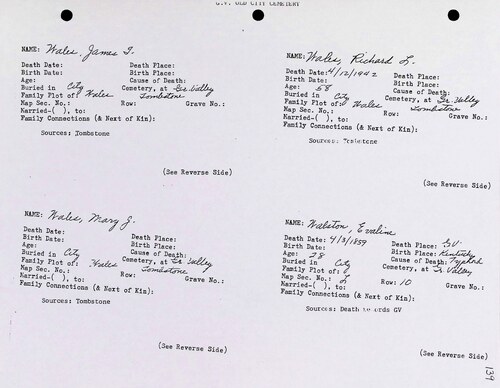 G.V. OLD CITY CEMETERY
NAME: Wales, James T.
Death Date: Death Place:
Birth Date: Birth Place:
Age: Cause of Death:
Buried in City Cemetery, at Gr. Valley
Family Plot of: Wales Tombstone
Map Sec. No.: Row: Grave No.:
Married-( ), to:
Family Connections (& Next of Kin):
Sources: Tombstone
(See Reverse Side)
NAME: Wales, Richard L.
Death Date: 4/12/1942 Death Place:
Birth Date: Birth Place:
Age: 58 Cause of Death:
Buried in City Cemetery, at Gr. Valley
Family Plot of: Wales Tombstone
Map Sec. No.: Row: Grave No.:
Married-( ), to:
Family Connections (& Next of Kin):
Sources: Tombstone
(See Reverse Side)
NAME: Wales, Mary J.
Death Date: Death Place:
Birth Date: Birth Place:
Age: Cause of Death:
Buried in City Cemetery, at Gr. Valley
Family Plot of: Wales Tombstone
Map Sec. No.: Row: Grave No.:
Married-( ), to:
Family Connections (& Next of Kin):
Sources: Tombstone
(See Reverse Side)
NAME: Walston, Evaline
Death Date: 4/3/1859 Death Place: G.V.
Birth Date: Birth Place: Kentucky
Age: 28 Cause of Death: Typhoid
Buried in City Cemetery, at Gr. Valley
Family Plot of:
Map Sec. No.: L Row: 10 Grave No.:
Married-( ), to:
Family Connections (& Next of Kin):
Sources: Death ords GV
(See Reverse Side)
139